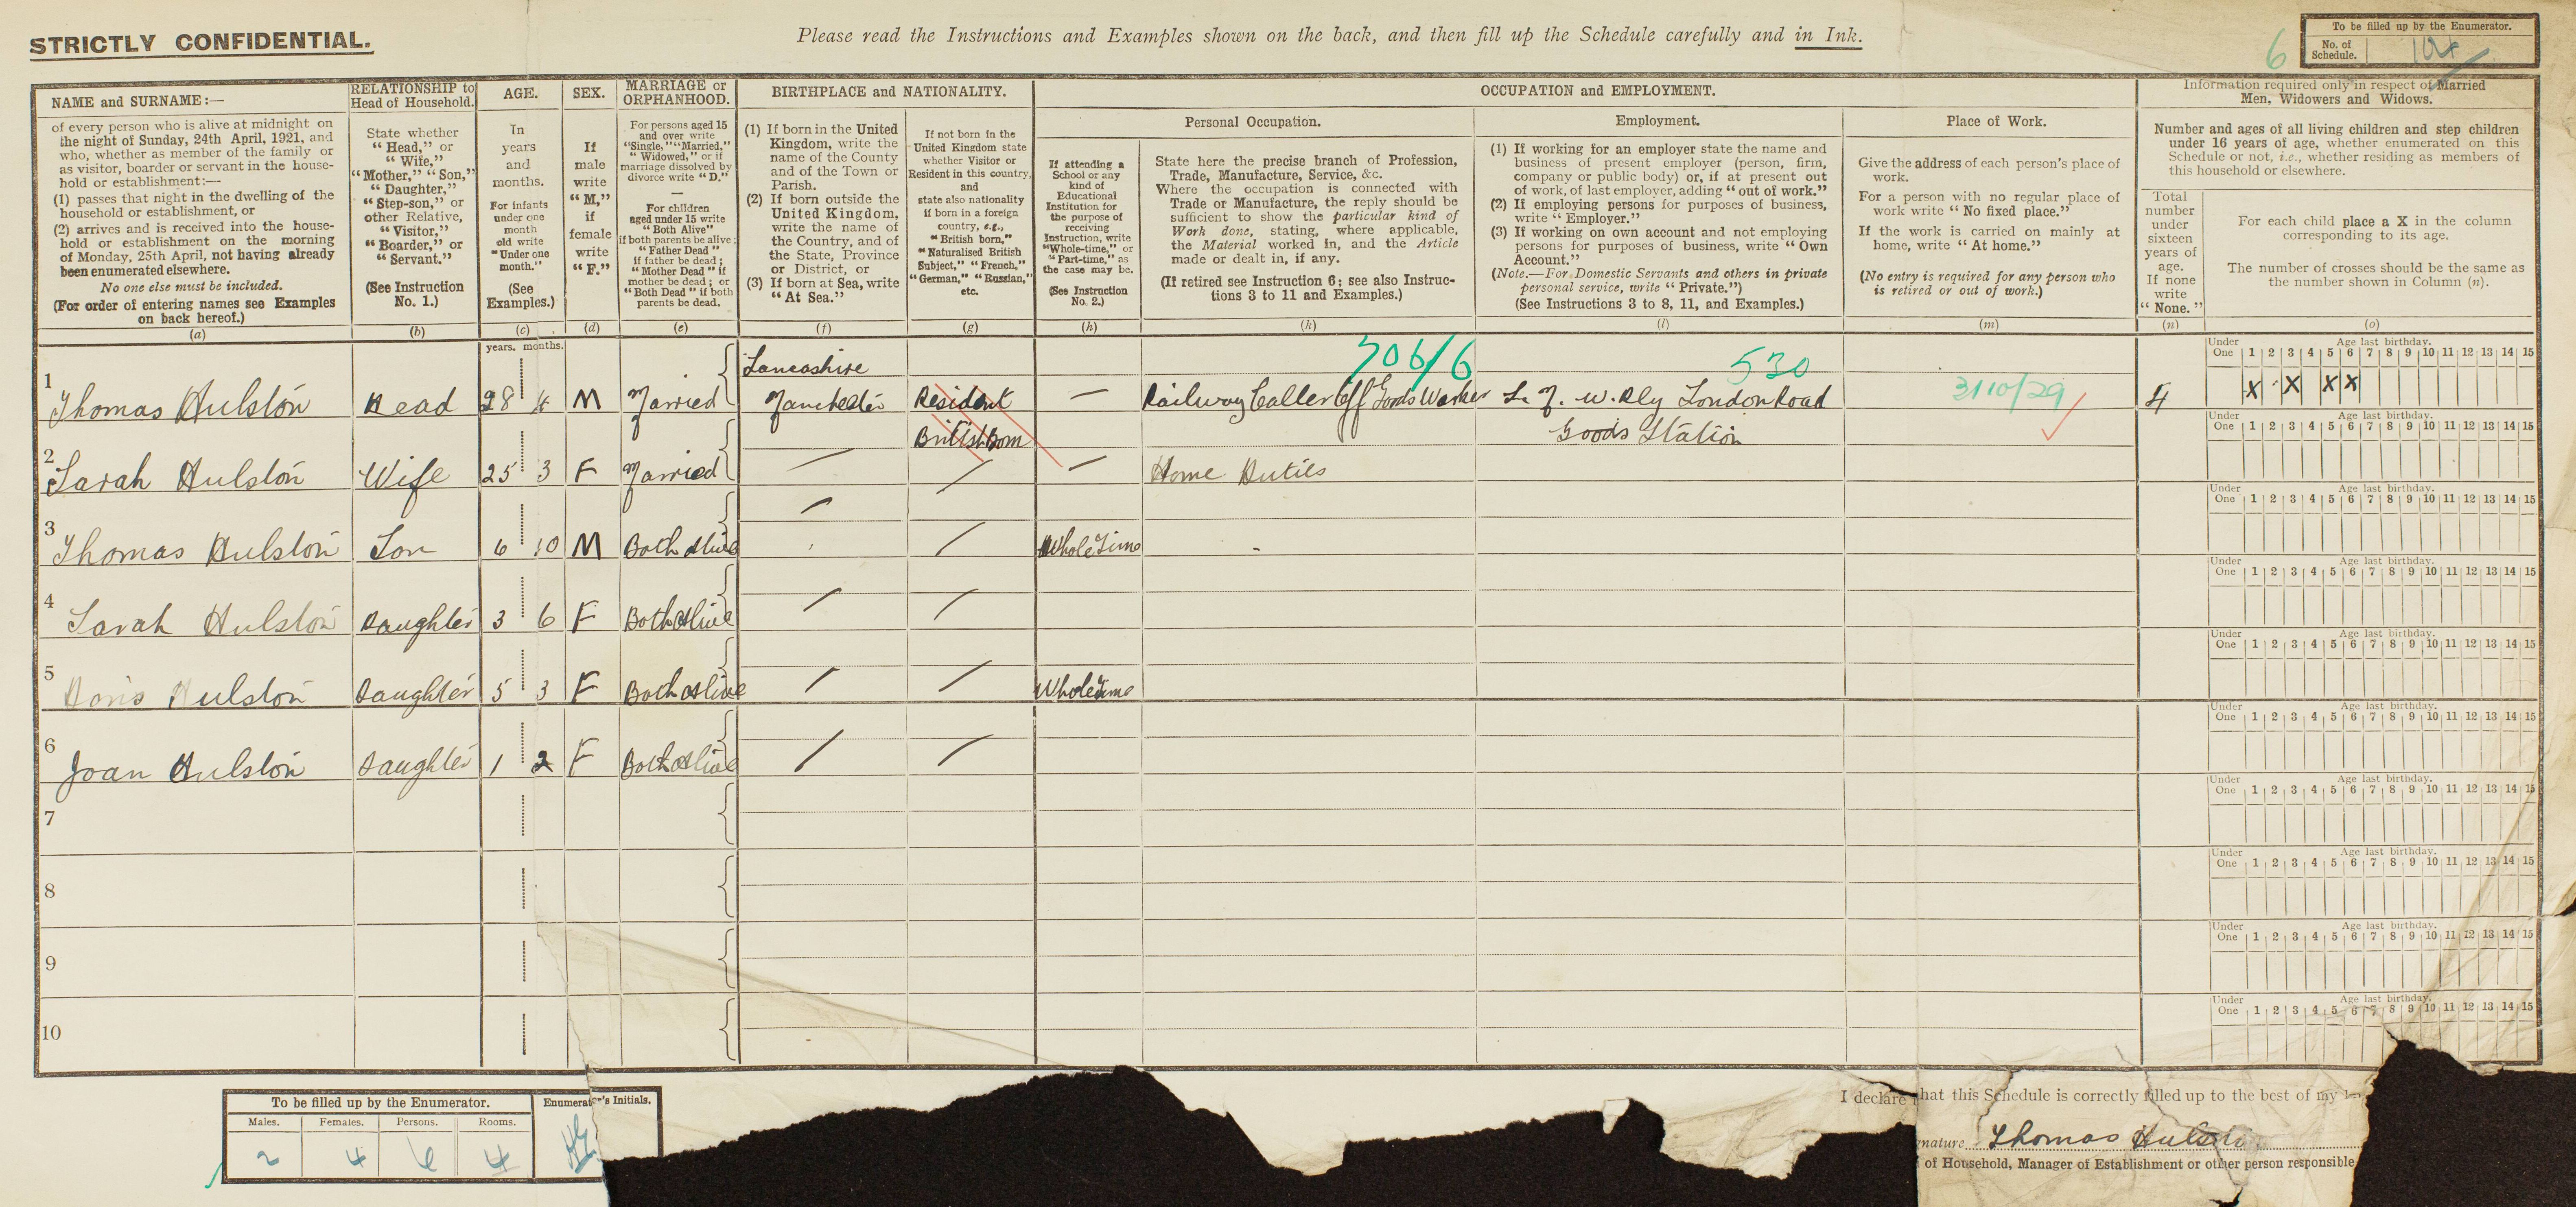 STRICTLY CONFIDENTIAL.
Please read the Instructions and Examples shown on the back, and then fill up the Schedule carefully and in Ink.
To be filled up by the Enumerator.
No. of Schedule.
6
104
NAME and SURNAME:—
of every person who is alive at midnight on
the night of Sunday, 24th April, 1921, and
who, whether as member of the family or
as visitor, boarder or servant in the house-
hold or establishment:—
(1) passes that night in the dwelling of the
household or establishment, or
(2) arrives and is received into the house-
hold or establishment on the morning
of Monday, 25th April, not having already
been enumerated elsewhere.
No one else must be included.
(For order of entering names see Examples
on back hereof.)
(a)
RELATIONSHIP to
Head of Household.
State whether
"Head," or
"Wife,"
"Mother," "Son,"
"Daughter,"
"Step-son," or
other Relative,
"Visitor,"
"Boarder," or
"Servant."
(See Instruction
No. 1.)
(b)
AGE.
In
years
and
months.
For infants
under one
month
old write
"Under one
month."
(See
Examples.)
(c)
SEX.
If
male
write
"M,"
if
female
write
"F."
(d)
MARRIAGE or
ORPHANHOOD.
For persons aged 15
and over write
"Single," "Married,"
"Widowed," or if
marriage dissolved by
divorce write "D."
—
For children
aged under 15 write
"Both Alive"
if both parents be alive;
"Father Dead"
if father be dead;
"Mother Dead" if
mother be dead; or
"Both Dead" if both
parents be dead.
(e)
BIRTHPLACE and NATIONALITY.
(1) If born in the United
Kingdom, write the
name of the County
and of the Town or
Parish.
(2) If born outside the
United Kingdom,
write the name of
the Country, and of
the State, Province
or District, or
(3) If born at Sea, write
"At Sea."
(f)
If not born in the
United Kingdom state
whether Visitor or
Resident in this country,
and
state also nationality
if born in a foreign
country, e.g.,
"British born,"
"Naturalised British
Subject," "French,"
"German," "Russian,"
etc.
(g)
OCCUPATION and EMPLOYMENT.
If attending a
School or any
kind of
Educational
Institution for
the purpose of
receiving
Instruction, write
"Whole-time," or
"Part-time," as
the case may be.
(See Instruction
No. 2.)
(h)
Personal Occupation.
State here the precise branch of Profession,
Trade, Manufacture, Service, &c.
Where the occupation is connected with
Trade or Manufacture, the reply should be
sufficient to show the particular kind of
Work done, stating, where applicable,
the Material worked in, and the Article
made or dealt in, if any.
(If retired see Instruction 6; see also Instruc-
tions 3 to 11 and Examples.)
(k)
Employment.
(1) If working for an employer state the name and
business of present employer (person, firm,
company or public body) or, if at present out
of work, of last employer, adding "out of work."
(2) If employing persons for purposes of business,
write "Employer."
(3) If working on own account and not employing
persons for purposes of business, write "Own
Account."
(Note.—For Domestic Servants and others in private
personal service, write "Private.")
(See Instructions 3 to 8, 11, and Examples.)
(l)
Place of Work.
Give the address of each person's place of
work.
For a person with no regular place of
work write "No fixed place."
If the work is carried on mainly at
home, write "At home."
(No entry is required for any person who
is retired or out of work.)
(m)
Information required only in respect of Married
Men, Widowers and Widows.
Number and ages of all living children and step children
under 16 years of age, whether enumerated on this
Schedule or not, i.e., whether residing as members of
this household or elsewhere.
Total
number
under
sixteen
years of
age.
If none
write
"None."
(n)
For each child place a X in the column
corresponding to its age.
The number of crosses should be the same as
the number shown in Column (n).
(o)
years. months.
Under One Age last birthday. 1 2 3 4 5 6 7 8 9 10 11 12 13 14 15
Lancashire 706/6 530
1 Thomas Hulston Head 28 4 M Married Manchester Resident — Railway Caller Off Goods Worker L. N. W. Rly London Road 3110/29 4 X X X X
British Born Goods Station
Under One Age last birthday. 1 2 3 4 5 6 7 8 9 10 11 12 13 14 15
2 Sarah Hulston Wife 25 3 F Married — Home Duties
Under One Age last birthday. 1 2 3 4 5 6 7 8 9 10 11 12 13 14 15
3 Thomas Hulston Son 6 10 M Both Alive Whole Time -
Under One Age last birthday. 1 2 3 4 5 6 7 8 9 10 11 12 13 14 15
4 Sarah Hulston Daughter 3 6 F Both Alive
Under One Age last birthday. 1 2 3 4 5 6 7 8 9 10 11 12 13 14 15
5 Doris Hulston Daughter 5 3 F Both Alive Whole Time
Under One Age last birthday. 1 2 3 4 5 6 7 8 9 10 11 12 13 14 15
6 Joan Hulston Daughter 1 2 F Both Alive
Under One Age last birthday. 1 2 3 4 5 6 7 8 9 10 11 12 13 14 15
7
Under One Age last birthday. 1 2 3 4 5 6 7 8 9 10 11 12 13 14 15
8
Under One Age last birthday. 1 2 3 4 5 6 7 8 9 10 11 12 13 14 15
9
Under One Age last birthday. 1 2 3 4 5 6 7 8 9 10 11 12 13 14 15
10
To be filled up by the Enumerator.
Enumerator's Initials.
Males. Females. Persons. Rooms.
2 4 6 4
I declare that this Schedule is correctly filled up to the best of my
nature Thomas Hulston
of Household, Manager of Establishment or other person responsible